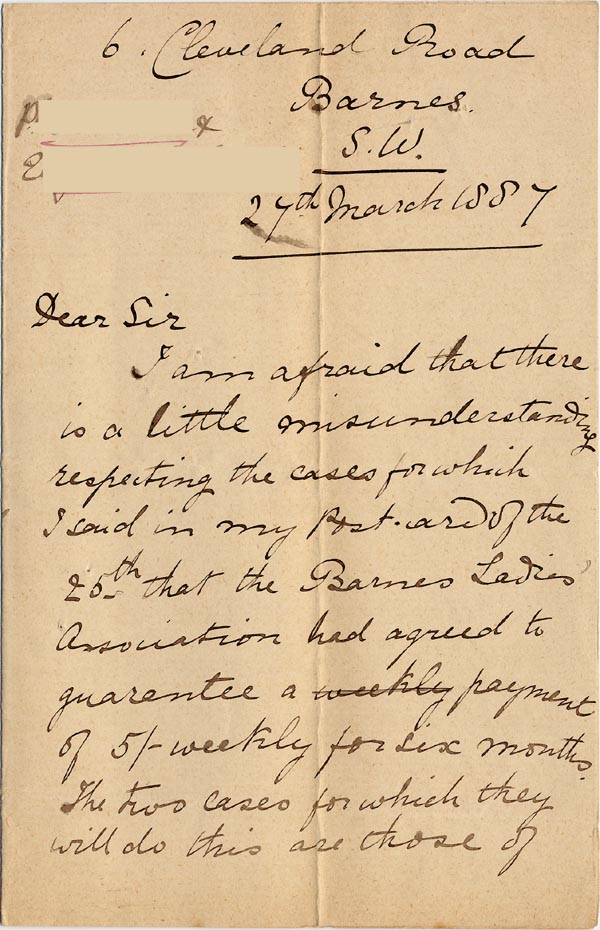 6. Cleveland Road
Barnes.
S.W.
27th March 1887
&
Dear Sir
I am afraid that there
is a little misunderstanding
respecting the cases for which
I said in my Post-card of the
25th that the Barnes Ladies'
Association had agreed to
guarantee a weekly payment
of 5/- weekly for six months.
The two cases for which they
will do this are those of